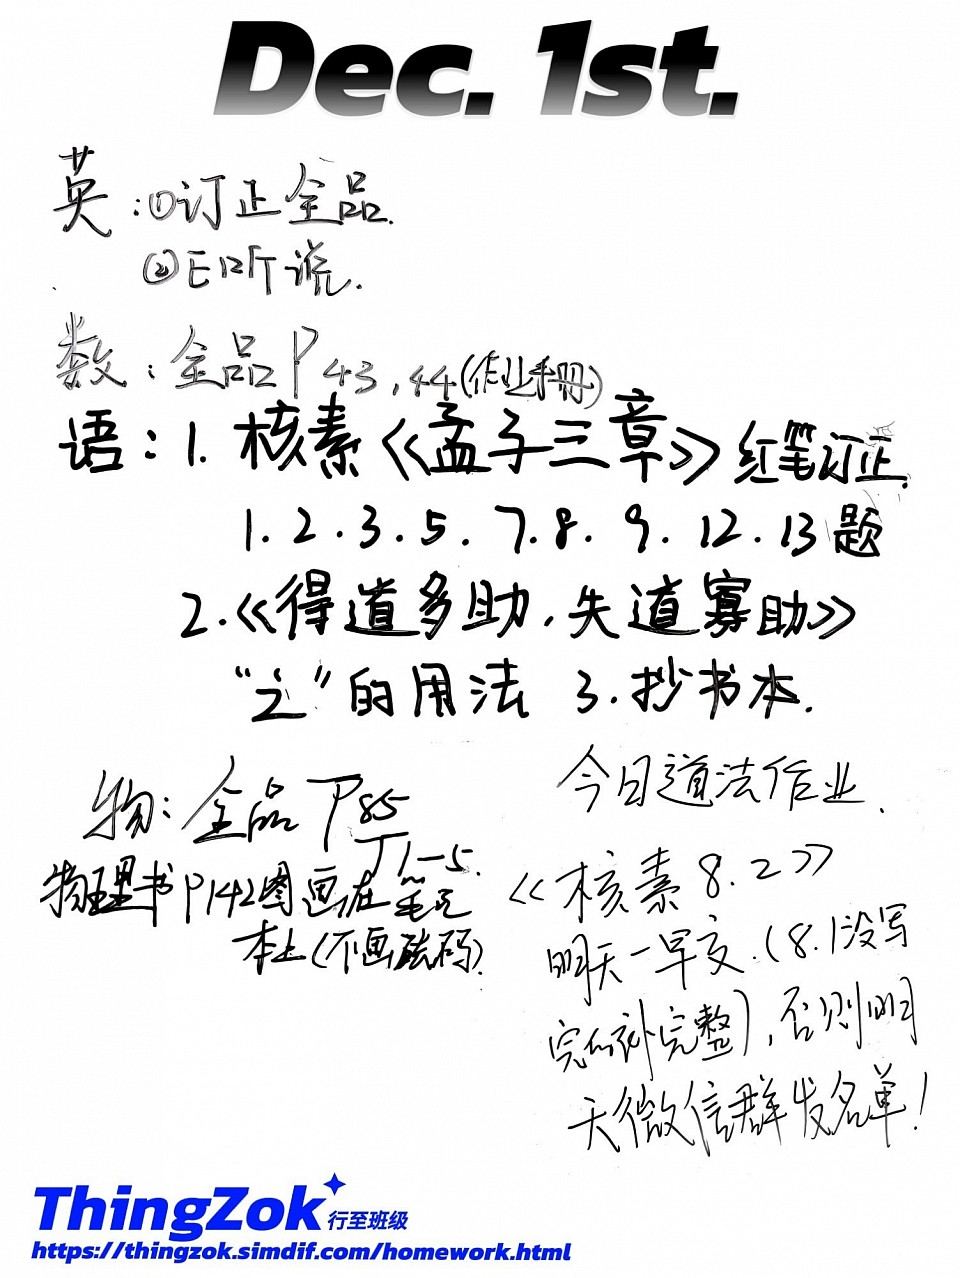 Dec. 1st.
英:①订正全品.
②E听说.
数:全品P43,44(作业手册)
语:1.核素《孟子三章》红笔订正.
1.2.3.5.7.8.9.12.13题
2.《得道多助,失道寡助》
“之”的用法 3.抄书本.
物:全品P85
T1-5.
物理书P142图画在笔记
本上(不画砝码).
今日道法作业.
《核素8.2》
明天一早交.(8.1没写
完的补完整),否则明
天微信群发名单!
ThingZok 行至班级
https://thingzok.simdif.com/homework.html